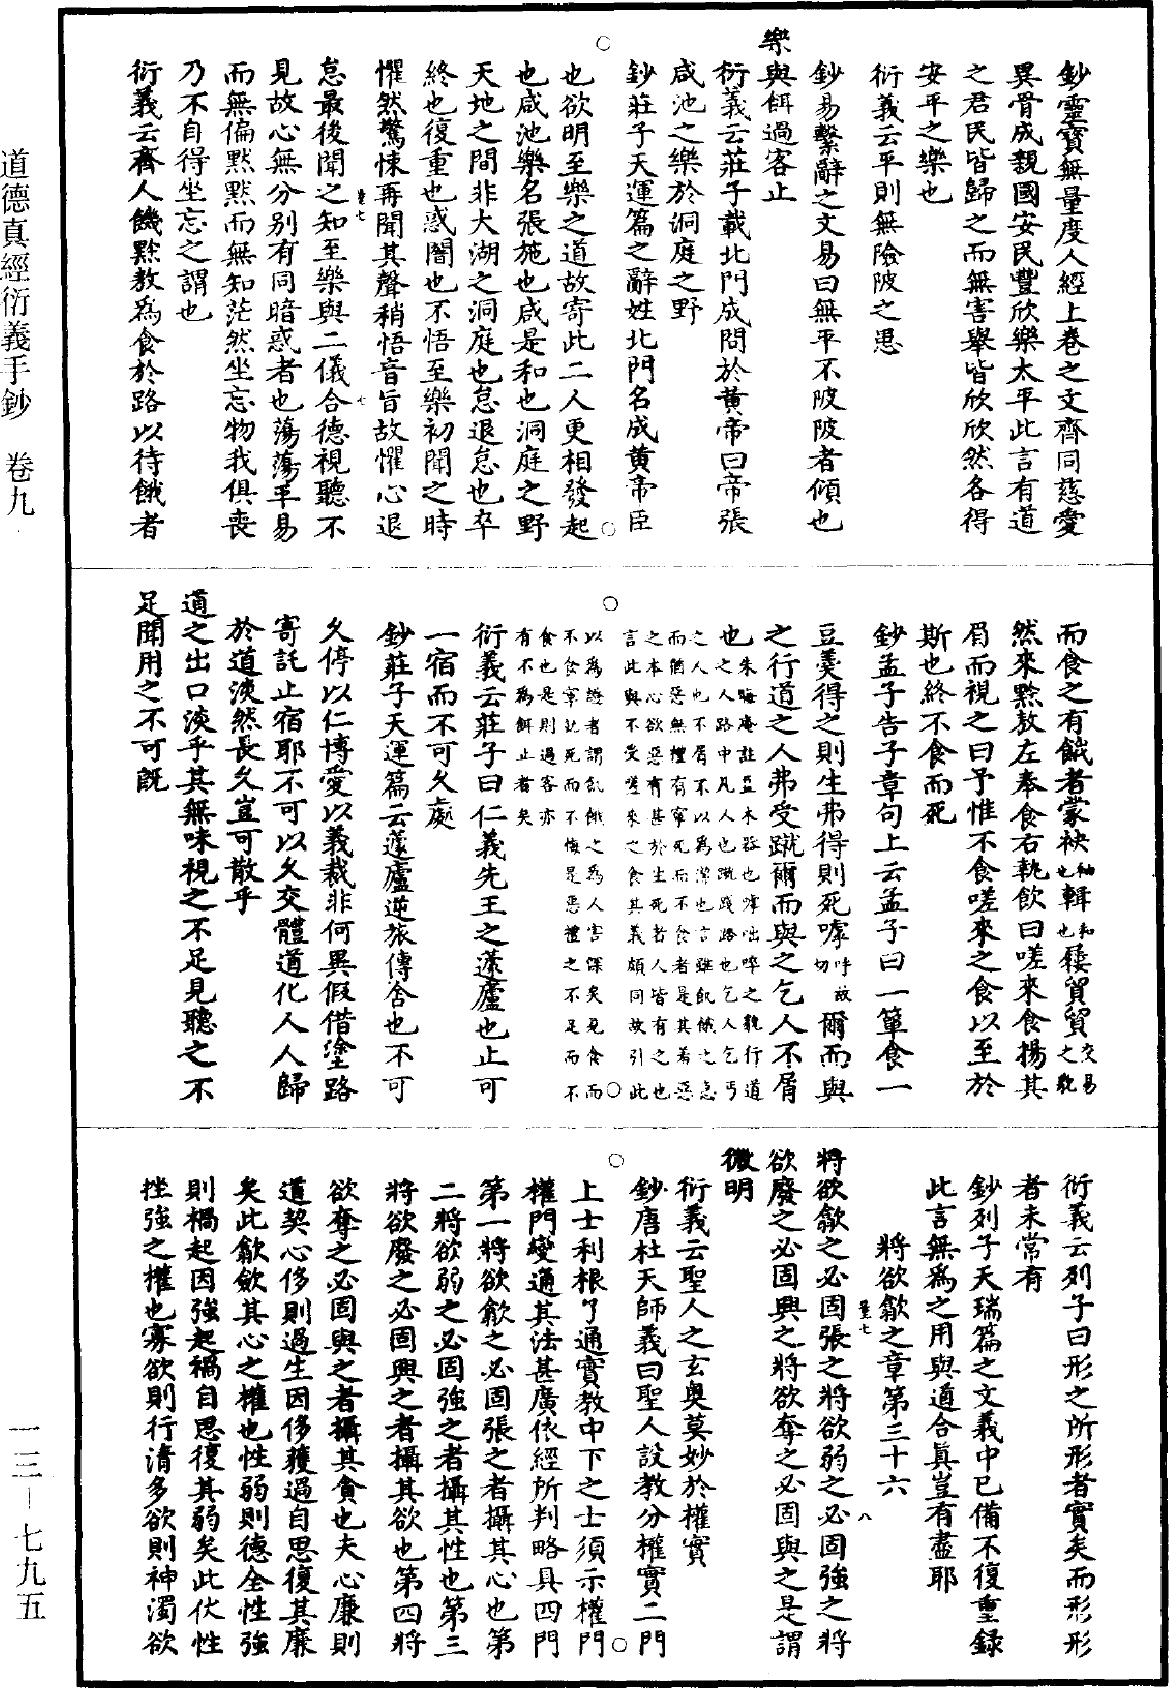 鈔靈寶無量度人經上卷之文齊同慈愛
異骨成親國安民豐欣樂太平此言有道
之君民皆歸之而無害舉皆欣欣然各得
安平之樂也
衍義云平則無險陂之患
鈔易繫辭之文易曰無平不陂陂者傾也
樂與餌過客止
衍義云莊子載北門成問於黄帝曰帝張
咸池之樂於洞庭之野
鈔莊子天運篇之辭姓北門名成黄帝臣
也欲明至樂之道故寄此二人更相發起
也咸池樂名張施也咸是和也洞庭之野
天地之間非大湖之洞庭也怠退怠也卒
終也復重也惑闇也不悟至樂初聞之時
懼然驚悚再聞其聲稍悟音旨故懼心退
怠最後聞之知至樂與二儀合德視聽不
見故心無分别有同暗惑者也蕩蕩平易
而無偏黙黙而無知茫然坐忘物我俱喪
乃不自得坐忘之謂也
衍義云齊人饑黔敖爲食於路以待餓者
而食之有餓者蒙袂袖也輯和也屨貿貿交易之貌
然來黔敖左奉食右執飲曰嗟來食揚其
眉而視之曰予惟不食嗟來之食以至於
斯也終不食而死
鈔孟子告子章句上云孟子曰一簞食一
豆羹得之則生弗得則死嘑呼故切爾而與
之行道之人弗受蹴爾而與之乞人不屑
也朱晦庵註豆木器也嘑咄啐之貌行道
之人路中凡人也蹴踐踏也乞人乞丐
之人也不屑不以為潔也言雖飢餓之急
而猶惡無禮有寧死而不食者是其羞惡
之本心欲惡有甚於生死者人皆有之也
言此與不受嗟來之食其義頗同故引此
以為證者謂飢餓之為人害深矣見食而
不食寧就死而不悔是惡禮之不足而不
食也是則過客亦
有不為餌止者矣
衍義云莊子曰仁義先王之蘧廬也止可
一宿而不可久處
鈔莊子天運篇云蘧廬逆旅傳舍也不可
久停以仁博愛以義裁非何異假借塗路
寄託止宿耶不可以久交體道化人人歸
於道淡然長久豈可散乎
道之出口淡乎其無味視之不足見聽之不
足聞用之不可既
衍義云列子曰形之所形者實矣而形形
者未常有
鈔列子天瑞篇之文義中已備不復重録
此言無爲之用與道合真豈有盡耶
將欲歙之章第三十六
將欲歙之必固張之將欲弱之必固強之將
欲廢之必固興之將欲奪之必固與之是謂
微明
衍義云聖人之玄奥莫妙於權實
鈔唐杜天師義曰聖人設教分權實二門
上士利根了通實教中下之士須示權門
權門變通其法甚廣依經所判略具四門
第一將欲歙之必固張之者攝其心也第
二將欲弱之必固強之者攝其性也第三
將欲廢之必固興之者攝其欲也第四將
欲奪之必固與之者攝其貪也夫心廉則
道契心侈則過生因侈獲過自思復其廉
矣此歙斂其心之權也性弱則德全性強
則禍起因強起禍自思復其弱矣此伏性
挫強之權也寡欲則行清多欲則神濁欲
道德真經衍義手鈔 卷九
一三—七九五